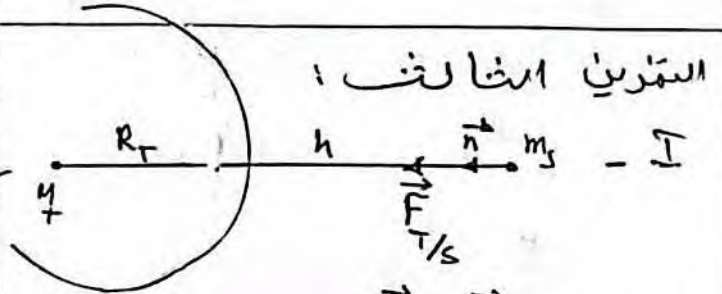 التمرين الثالث :
I - 
R_T h n⃗ m_S
M_T
F⃗_T/S